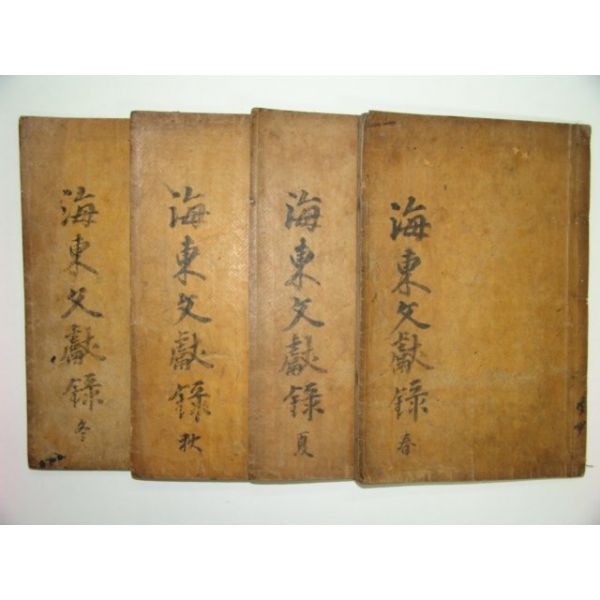 海東文獻錄 春
海東文獻錄 夏
海東文獻錄 秋
海東文獻錄 冬